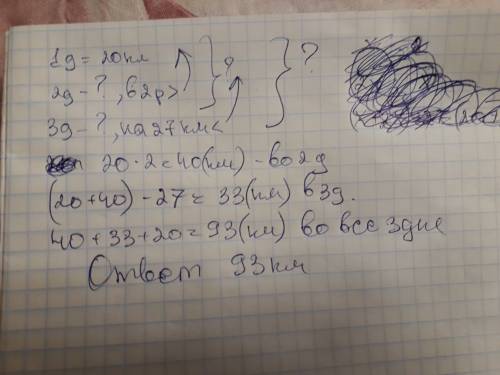 1д = 20 км
2д - ?, в 2р > } ?
3д - ?, на 27 км < } ?
20 · 2 = 40 (км) - во 2д
(20+40) - 27 = 33 (км) в 3д.
40 + 33 + 20 = 93 (км) во все 3 дне
Ответ 93 км